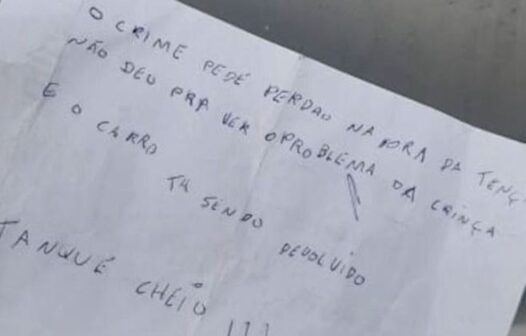 O CRIME PEDE PERDAO NA HORA DA TENÇ
NÃO DEU PRA VER O PROBLEMA DA CRINÇA
E O CARRO TA SENDO DEVOLVIDO
TANQUE CHEIO !!!